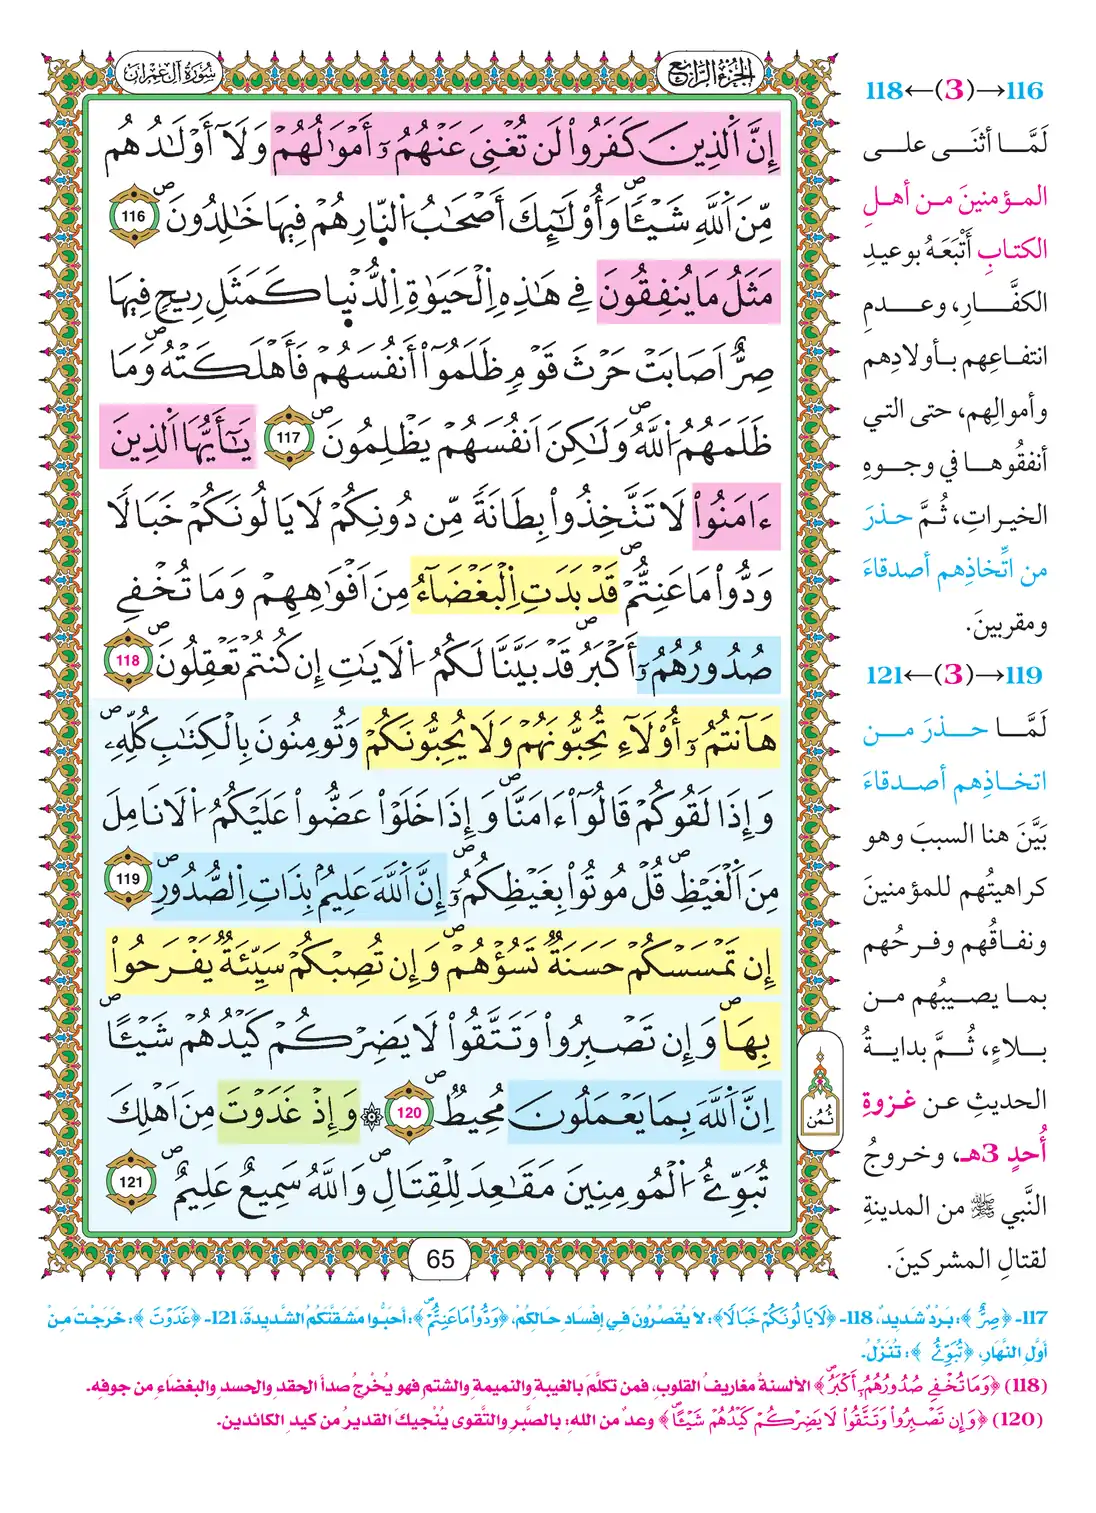 سُورَةُ آلِ عِمْرَان
الجُزْءُ الرَّابِعُ
إِنَّ اَ۬لذِينَ كَفَرُواْ لَن تُغْنِىَ عَنْهُمُۥٓ أَمْوَٰلُهُمْ وَلَآ أَوْلَٰدُهُم
مِّنَ اَ۬للَّهِ شَيْـٔاًۖ وَأُوْلَٰٓئِكَ أَصْحَٰبُ اُ۬لنّ۪ارِ هُمْ فِيهَا خَٰلِدُونَۖ 116
مَثَلُ مَا يُنفِقُونَ فِے هَٰذِهِ اِ۬لْحَيَوٰةِ اِ۬لدُّنْي۪ا كَمَثَلِ رِيحٍ فِيهَا
صِرٌّ اَصَابَتْ حَرْثَ قَوْمٍ ظَلَمُوٓاْ أَنفُسَهُمْ فَأَهْلَكَتْهُۖ وَمَا
ظَلَمَهُمُ اُ۬للَّهُۖ وَلَٰكِنَ اَنفُسَهُمْ يَظْلِمُونَۖ 117 يَٰٓأَيُّهَا اَ۬لذِينَ
ءَامَنُواْ لَا تَتَّخِذُواْ بِطَانَةً مِّن دُونِكُمْ لَا يَالُونَكُمْ خَبَالًا
وَدُّواْ مَا عَنِتُّمْۖ قَدْ بَدَتِ اِ۬لْبَغْضَآءُ مِنَ اَفْوَٰهِهِمْ وَمَا تُخْفِے
صُدُورُهُمُۥٓ أَكْبَرُۖ قَدْ بَيَّنَّا لَكُمُ اُ۬لَايَٰتِ إِن كُنتُمْ تَعْقِلُونَۖ 118
هَآنتُمُۥٓ أُوْلَآءِ تُحِبُّونَهُمْ وَلَا يُحِبُّونَكُمْ وَتُومِنُونَ بِالْكِتَٰبِ كُلِّهِۦۖ
وَإِذَا لَقُوكُمْ قَالُوٓاْ ءَامَنَّاۖ وَإِذَا خَلَوْاْ عَضُّواْ عَلَيْكُمُ اُ۬لَانَامِلَ
مِنَ اَ۬لْغَيْظِۖ قُلْ مُوتُواْ بِغَيْظِكُمُۥٓۖ إِنَّ اَ۬للَّهَ عَلِيمُۢ بِذَاتِ اِ۬لصُّدُورِۖ 119
إِن تَمْسَسْكُمْ حَسَنَةٌ تَسُؤْهُمْۖ وَإِن تُصِبْكُمْ سَيِّئَةٌ يَفْرَحُواْ
بِهَاۖ وَإِن تَصْبِرُواْ وَتَتَّقُواْ لَا يَضِرْكُمْ كَيْدُهُمْ شَيْـًٔاۖ
اِنَّ اَ۬للَّهَ بِمَا يَعْمَلُونَ مُحِيطٌۖ 120 ۞ وَإِذْ غَدَوْتَ مِنَ اَهْلِكَ
تُبَوِّئُ اُ۬لْمُومِنِينَ مَقَٰعِدَ لِلْقِتَالِۖ وَاللَّهُ سَمِيعٌ عَلِيمٌۖ 121
ثُمُن
65
118←(3)→116
لَمَّا أثنَى على
المؤمنينَ من أهلِ
الكتابِ أَتْبَعَهُ بوعيدِ
الكفَّارِ، وعدمِ
انتفاعِهم بأولادِهم
وأموالِهم، حتى التي
أنفقُوها في وجوهِ
الخيراتِ، ثُمَّ حذرَ
من اتِّخاذِهم أصدقاءَ
ومقربينَ.
121←(3)→119
لَمَّا حذرَ من
اتخاذِهم أصدقاءَ
بَيَّنَ هنا السببَ وهو
كراهيتُهم للمؤمنينَ
ونفاقُهم وفرحُهم
بما يصيبُهم من
بلاءٍ، ثُمَّ بدايةُ
الحديثِ عن غزوةِ
أُحدٍ 3هـ، وخروجُ
النَّبي ﷺ من المدينةِ
لقتالِ المشركينَ.
117- ﴿صِرٌّ﴾: بَرْدٌ شَدِيدٌ، 118- ﴿لَا يَالُونَكُمْ خَبَالًا﴾: لَا يُقَصِّرُونَ فِي إِفْسَادِ حَالِكُمْ، ﴿وَدُّواْ مَا عَنِتُّمْۖ﴾: أَحَبُّوا مَشَقَّتَكُمُ الشَّدِيدَةَ، 121- ﴿غَدَوْتَ﴾: خَرَجْتَ مِنْ
أَوَّلِ النَّهَارِ، ﴿تُبَوِّئُ﴾: تُنَزِّلُ.
(118) ﴿وَمَا تُخْفِے صُدُورُهُمُۥٓ أَكْبَرُۖ﴾ الألسنةُ مغاريفُ القلوبِ، فمن تكلَّمَ بالغيبةِ والنميمةِ والشتمِ فهو يُخْرِجُ صدأَ الحقدِ والحسدِ والبغضاءِ من جوفه.
(120) ﴿وَإِن تَصْبِرُواْ وَتَتَّقُواْ لَا يَضِرْكُمْ كَيْدُهُمْ شَيْـًٔاۖ﴾ وعدٌ من الله: بالصَّبرِ والتَّقوى يُنْجيكَ القديرُ من كيدِ الكائدين.